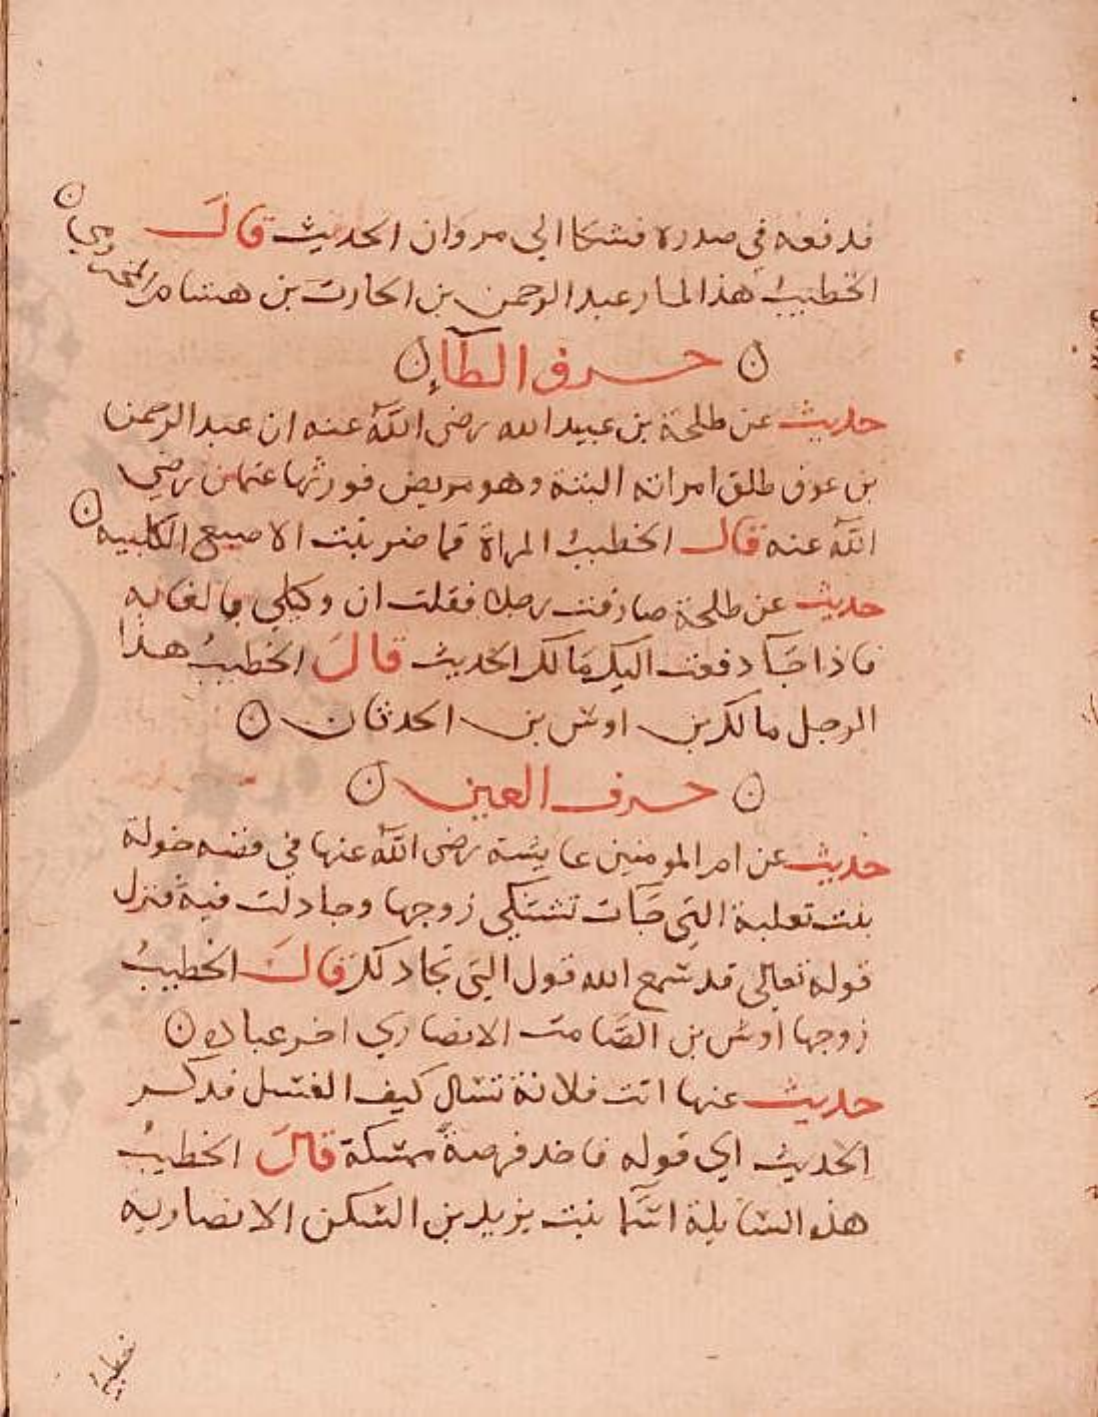 فدفعه في صدره فشكا الى مروان الحديث قال
الخطيب هذا المار عبد الرحمن بن الحارث بن هشام المخزومي
حرف الطآء
حديث عن طلحة بن عبيد الله رضى الله عنه ان عبد الرحمن
بن عوف طلق امراته البتة وهو مريض فورثها عثمان رضي
الله عنه قال الخطيب المراة تماضر بنت الاصبع الكلبيه
حديث عن طلحة صارفت رجلا فقلت ان وكيلي بالغابه
فاذا جآ دفعت اليك مالك الحديث قال الخطيب هذا
الرجل مالك بن اوس بن الحدثان
حرف العين
حديث عن ام المومنين عايشة رضى الله عنها في قصه خولة
بنت تعلبة التي جآت تشتكي زوجها وجادلت فيه فنزل
قوله تعالى قد سمع الله قول التي تجادلك قال الخطيب
زوجها اوس بن الصامت الانصاري اخو عباده
حديث عنها اتت فلانة تسال كيف الغسل فذكر
الحديث الى قوله فاخذ فرصة ممسكة قال الخطيب
هذه السايلة اسما بنت يزيد بن السكن الانصاريه